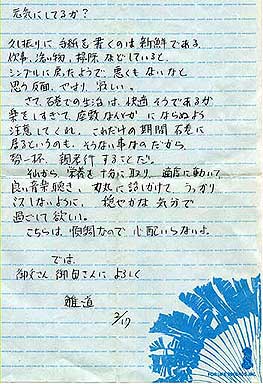 元気にしてるか?
久し振りに手紙を書くのは新鮮である。
炊事、洗い物、掃除などしていると、
シンプルに戻ったようで悪くもないなと
思う反面、やはり寂しい。
さて、石巻での生活は、快適そうであるが
楽をしすぎて、座敷なんとかにならぬよう
注意してくれ。これだけの期間石巻に
居るというのも、そうない事なのだから、
勢一杯、親孝行することだ。
それから、栄養を十分に取り、適度に動いて、
良い音楽聴き、お丸に話しかけて、うっかり
しないように、穏やかな気分で
過ごして欲しい。
こちらは、順調なので心配いらないよ。
では、
御父さん 御母さんによろしく
雅道
3/17
FOR LIFE RECORDS, INC.